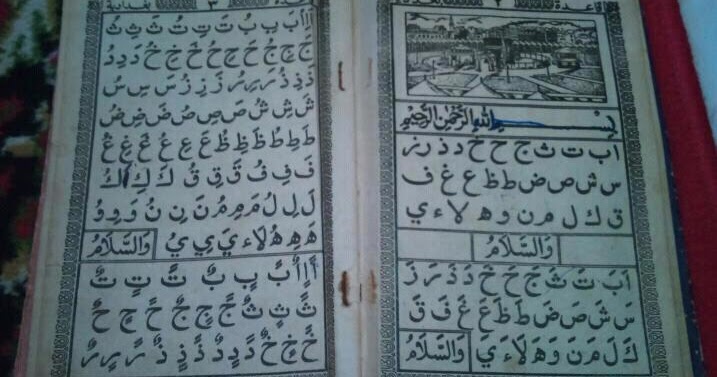 قاعدة ٢
بسم الله الرحمن الرحيم
ا ب ت ث ج ح خ د ذ ر ز
س ش ص ض ط ظ ع غ ف
ق ك ل م ن و ه لا ء ي
وَالسَّلَامُ
اَ بَ تَ ثَ جَ حَ خَ دَ ذَ رَ زَ
سَ شَ صَ ضَ طَ ظَ عَ غَ فَ قَ
كَ لَ مَ نَ وَ هَ لَا ءَ يَ وَالسَّلَامُ
٣ بغدادية
اَ اِ اُ بَ بِ بُ تَ تِ تُ ثَ ثِ ثُ
جَ جِ جُ حَ حِ حُ خَ خِ خُ دَ دِ دُ
ذَ ذِ ذُ رَ رِ رُ زَ زِ زُ سَ سِ سُ
شَ شِ شُ صَ صِ صُ ضَ ضِ ضُ
طَ طِ طُ ظَ ظِ ظُ عَ عِ عُ غَ غِ غُ
فَ فِ فُ قَ قِ قُ كَ كِ كُ
لَ لِ لُ مَ مِ مُ نَ نِ نُ وَ وِ وُ
هَ هِ هُ لَا ءَ يَ يِ يُ وَالسَّلَامُ
اً اٍ اٌ بً بٍ بٌ تً تٍ تٌ
ثً ثٍ ثٌ جً جٍ جٌ حً حٍ حٌ
خً خٍ خٌ دً دٍ دٌ ذً ذٍ ذٌ رً رٍ رٌ